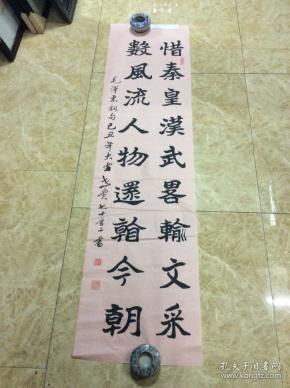 惜秦皇漢武畧輸文采
數風流人物還翰今朝
毛澤東詞句己丑年大雪
七十有二書
孔夫子旧书网